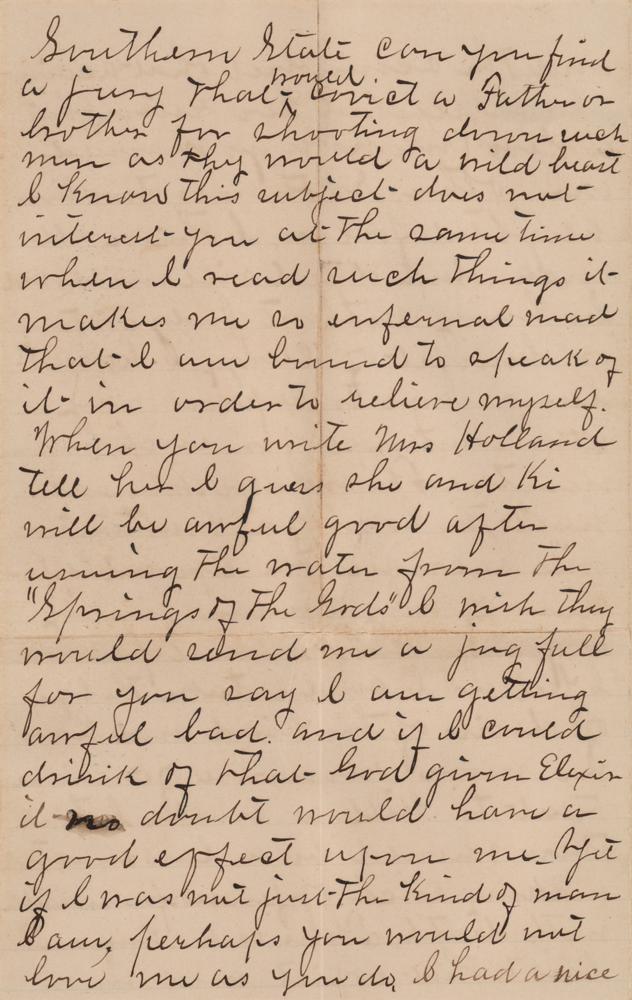 Southern State can you find
a jury that would convict a Father or
brother for shooting down such
men as they would a wild beast
I know this subject does not
interest you at the same time
when I read such things it
makes me so enfernal mad
that I am bound to speak of
it in order to relieve myself.
When you write Mrs Holland
tell her I guess she and Ki
will be awful good after
using the water from the
"Springs of the Gods" I wish they
would send me a jug full
for you say I am getting
awful bad. and if I could
drink of that God given Elexir
it no doubt would have a
good effect upon me. Yet
if I was not just the kind of man
I am, perhaps you would not
love me as you do, I had a nice